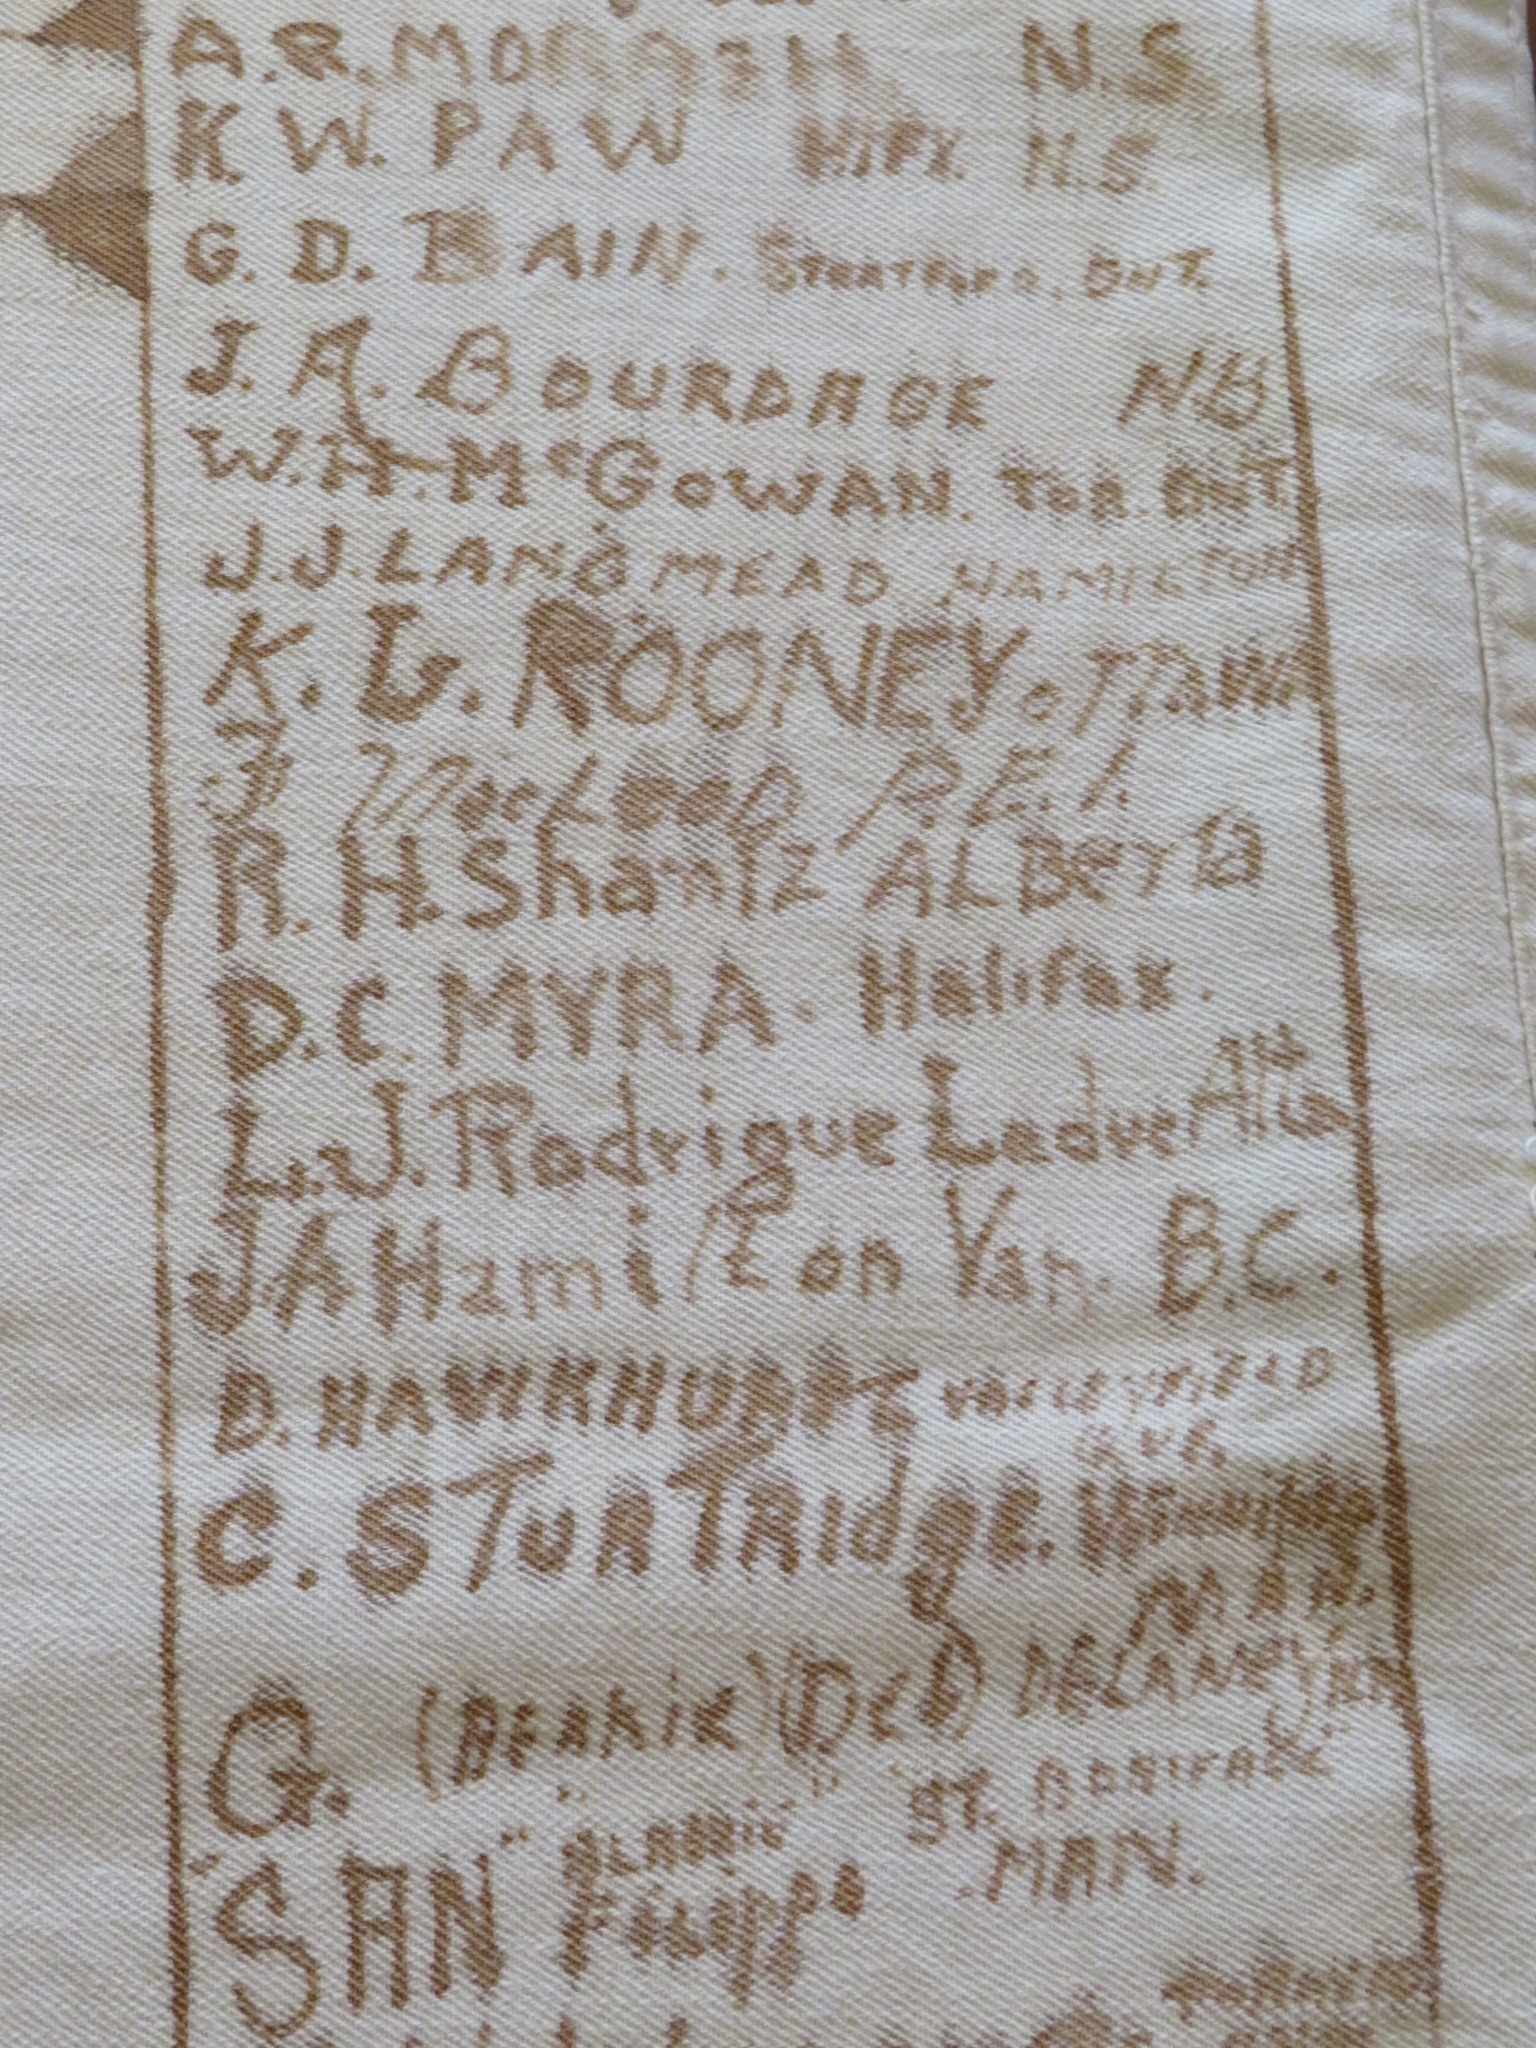 A.R. MORGAN N.S
K. W. PAW H.IFX. N.S.
G. D. BAIN. STRATFORD, ONT.
J. A. BOURDAGE N.B
W. H. McGOWAN. TOR. ONT.
J. J. LANGMEAD HAMILTON
K. L. ROONEY OTTAWA
J MacLEOD P.E.I.
R. H. Shantz ALBerTa
D. C. MYRA. Halifax.
L. J. Rodrigue Leduc Alta
J. A Hamilton Van. B.C.
D. HAWKHURST VALLEYFIELD
QUE.
C. STURTRIdge. Winnipeg
MAN.
G. (BEAKIE) (DED) DELANEY
"SAN" "BLABBIE" ST. BONIFACE
Felippe MAN.